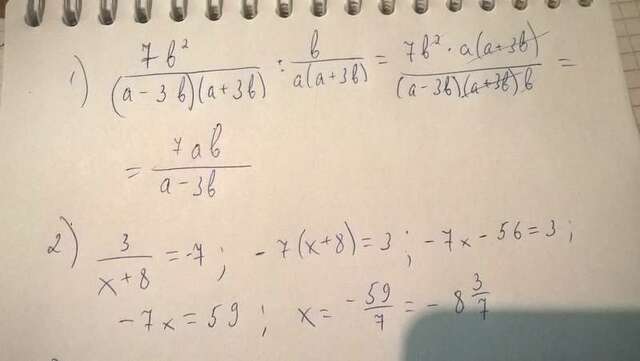 1) 7в² / (а - 3в)(а + 3в) : в / а(а + 3в) = 7в² · а(а + 3в) / (а - 3в)(а + 3в)в =
= 7ав / а - 3в
2) 3 / x + 8 = -7 ; -7(x + 8) = 3 ; -7x - 56 = 3 ;
-7x = 59 ; x = -59/7 = -8 3/7